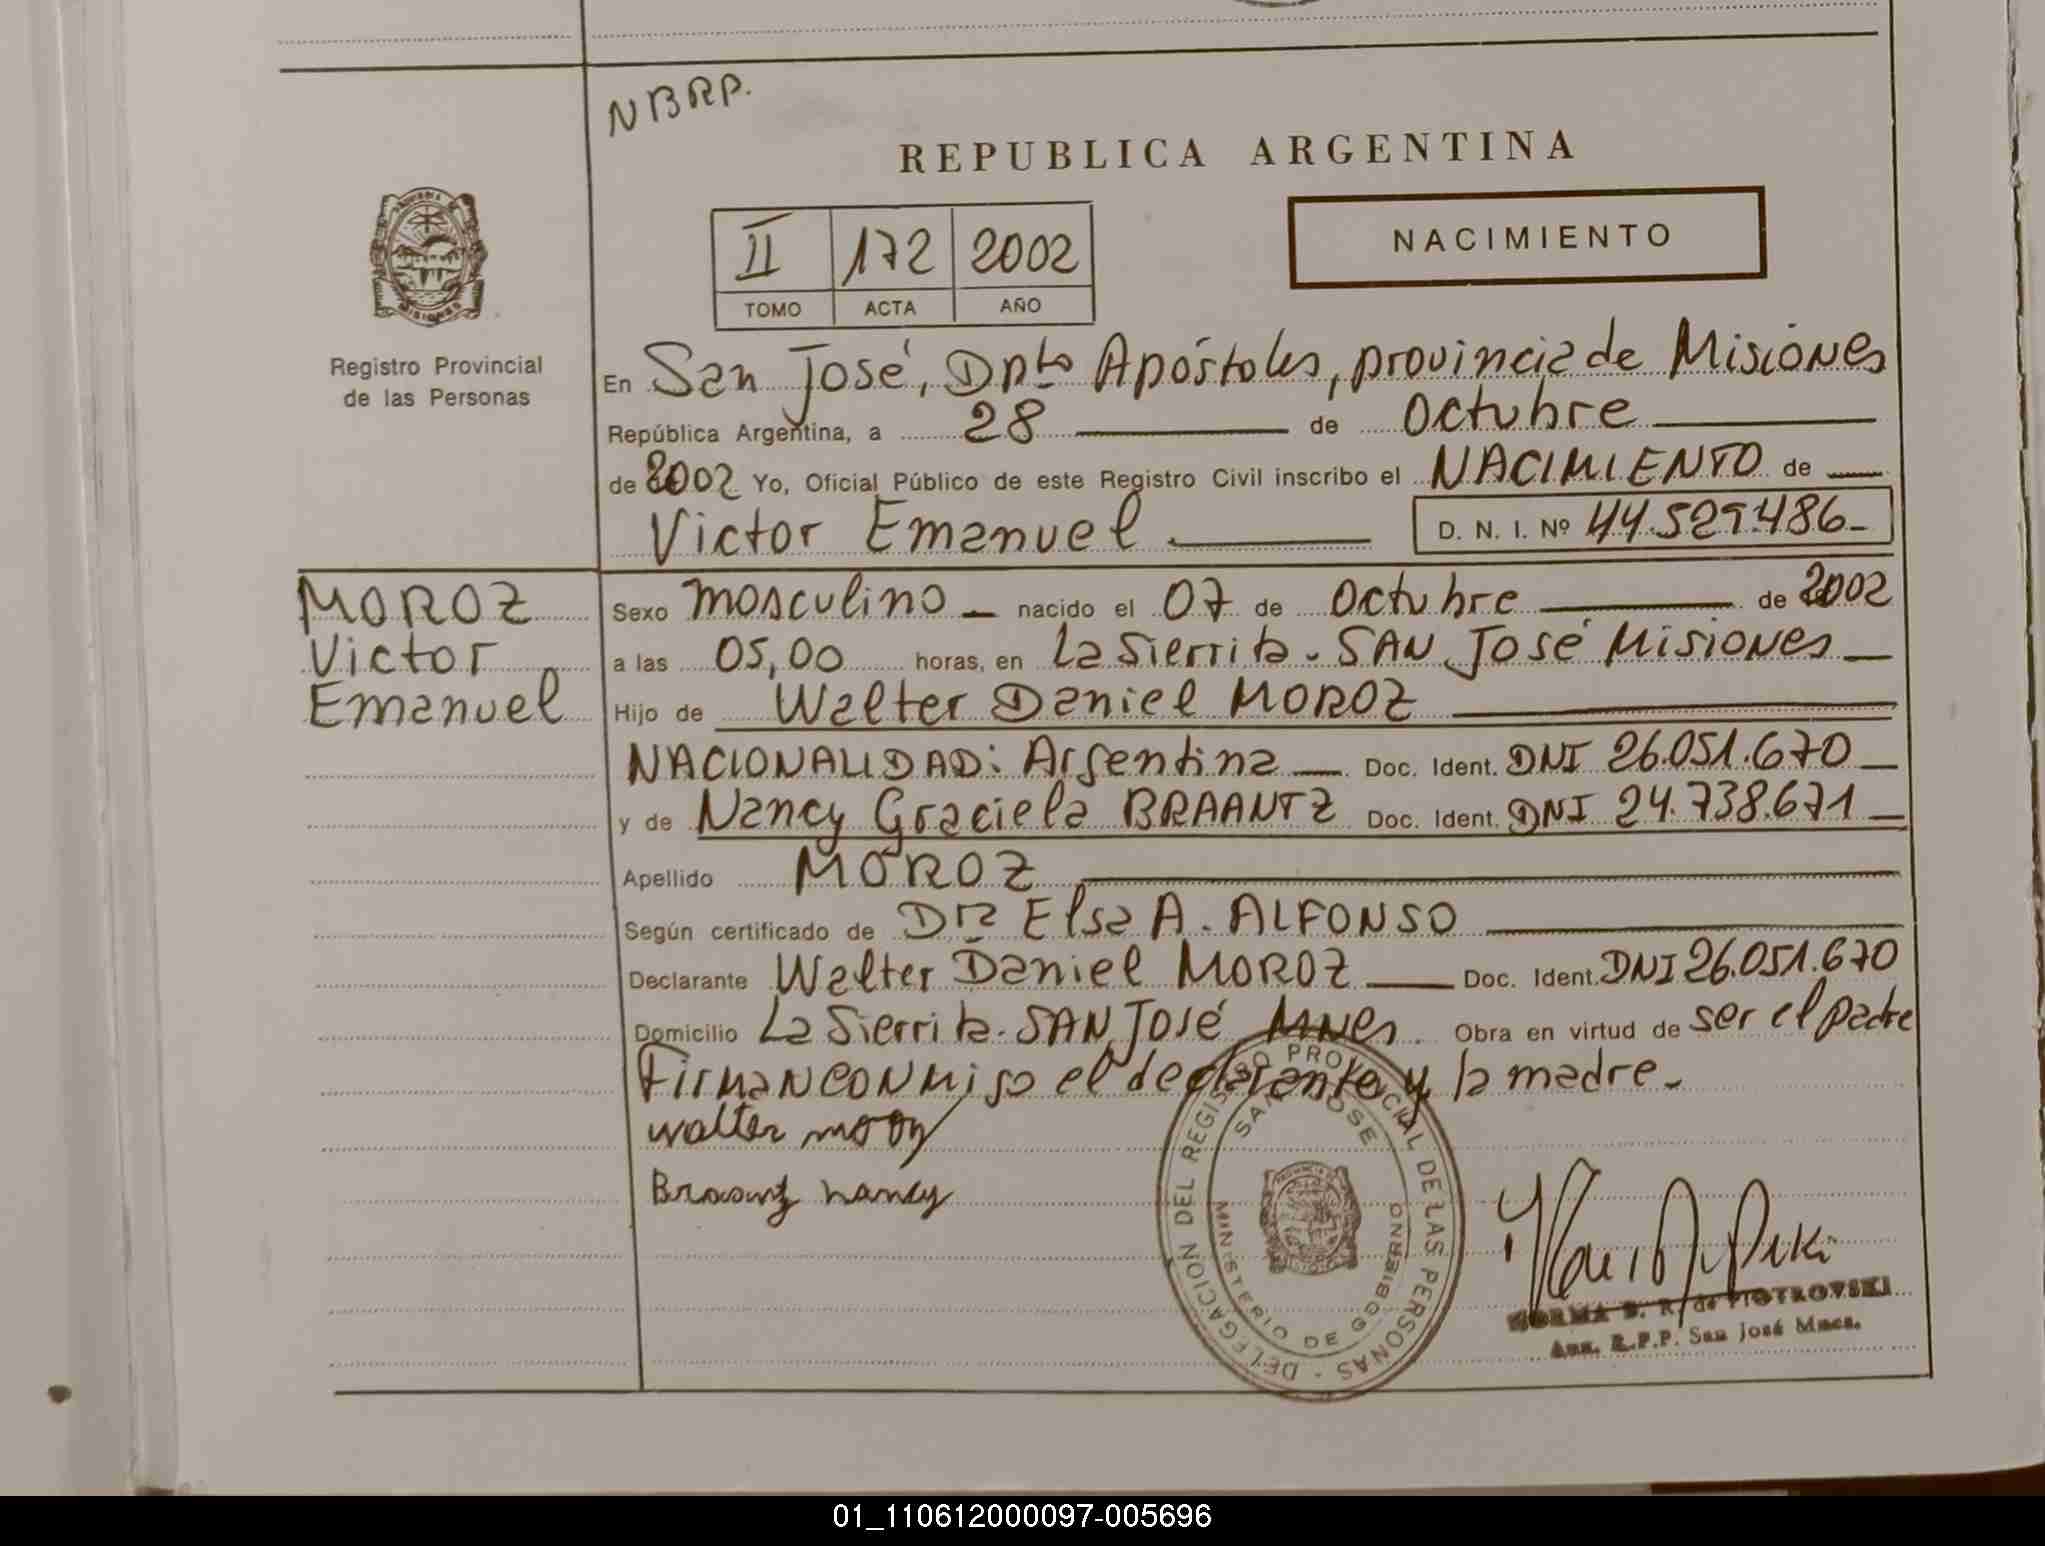 NBRP.
REPUBLICA ARGENTINA
II 172 2002
TOMO ACTA AÑO
NACIMIENTO
Registro Provincial
de las Personas
En San José, Dpto Apóstoles, provincia de Misiones
República Argentina, a 28 de Octubre
de 2002 Yo, Oficial Público de este Registro Civil inscribo el NACIMIENTO de
Victor Emanuel D. N. I. Nº 44.529.486
MOROZ
Victor
Emanuel
Sexo masculino nacido el 07 de Octubre de 2002
a las 05,00 horas, en La Sierrita - SAN José Misiones
Hijo de Walter Daniel MOROZ
NACIONALIDAD: Argentina Doc. Ident. DNI 26.051.670
y de Nancy Graciela BRAANTZ Doc. Ident. DNI 24.738.671
Apellido MOROZ
Según certificado de Dra Elsa A. ALFONSO
Declarante Walter Daniel MOROZ Doc. Ident. DNI 26.051.670
Domicilio La Sierrita - SAN José Mnes. Obra en virtud de ser el padre
Firman conmigo el declarante y la madre.
walter moroz
Braantz nancy
DELEGACION DEL REGISTRO PROVINCIAL DE LAS PERSONAS -
SAN JOSE
MINISTERIO DE GOBIERNO
NORMA B. R. de PIOTROVSKI
R.P.P. San José Mnes.
01_110612000097-005696